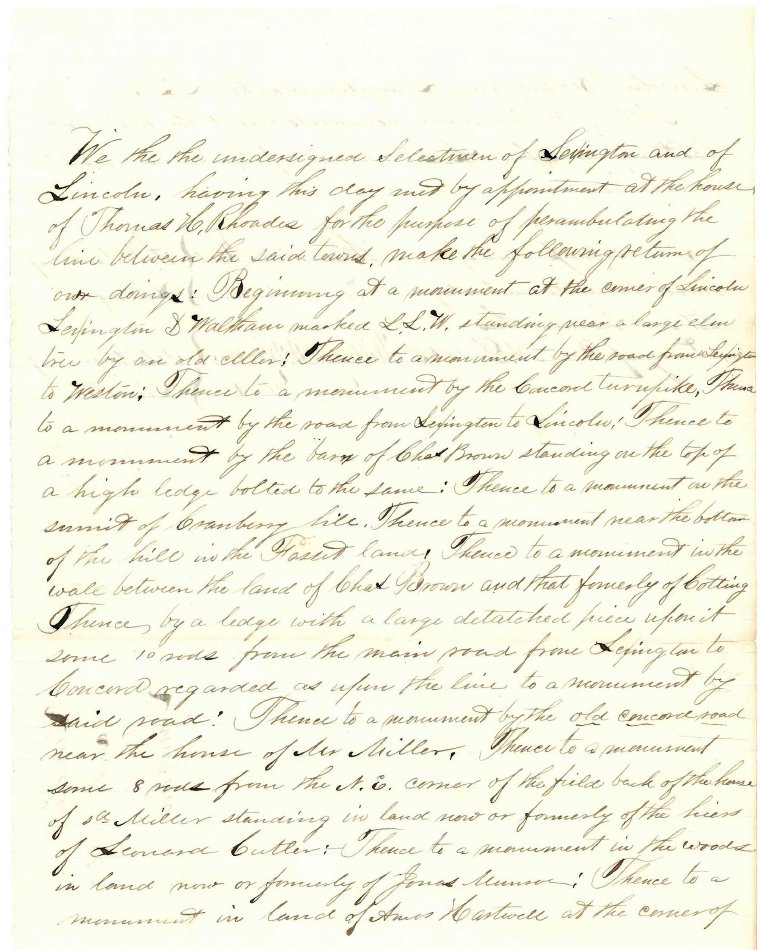 We the the undersigned Selectmen of Lexington and of
Lincoln, having this day met by appointment at the house
of Thomas H. Rhoades for the purpose of perambulating the
line between the said towns, make the following return of
our doings: Beginning at a monument at the corner of Lincoln
Lexington & Waltham marked L.L.W. standing near a large elm
tree by an old celler: Thence to a monument by the road from Lexington
to Weston: Thence to a monument by the Concord turnpike, Thence
to a monument by the road from Lexington to Lincoln: Thence to
a monument by the barn of Chas Brown standing on the top of
a high ledge bolted to the same: Thence to a monument on the
summit of Cranberry hill. Thence to a monument near the bottom
of the hill in the Fasset land: Thence to a monument in the
wall between the land of Chas Brown and that formerly of Cotting
Thence, by a ledge with a large detatched piece upon it
some 10 rods from the main road from Lexington to
Concord regarded as upon the line to a monument by
said road: Thence to a monument by the old concord road
near the house of Mr Miller. Thence to a monument
some 8 rods from the N.E. corner of the field back of the house
of sd Miller standing in land now or formerly of the hiers
of Leonard Cutler: Thence to a monument in the woods
in land now or formerly of Jonas Munroe: Thence to a
monument in land of Amos Hartwell at the corner of